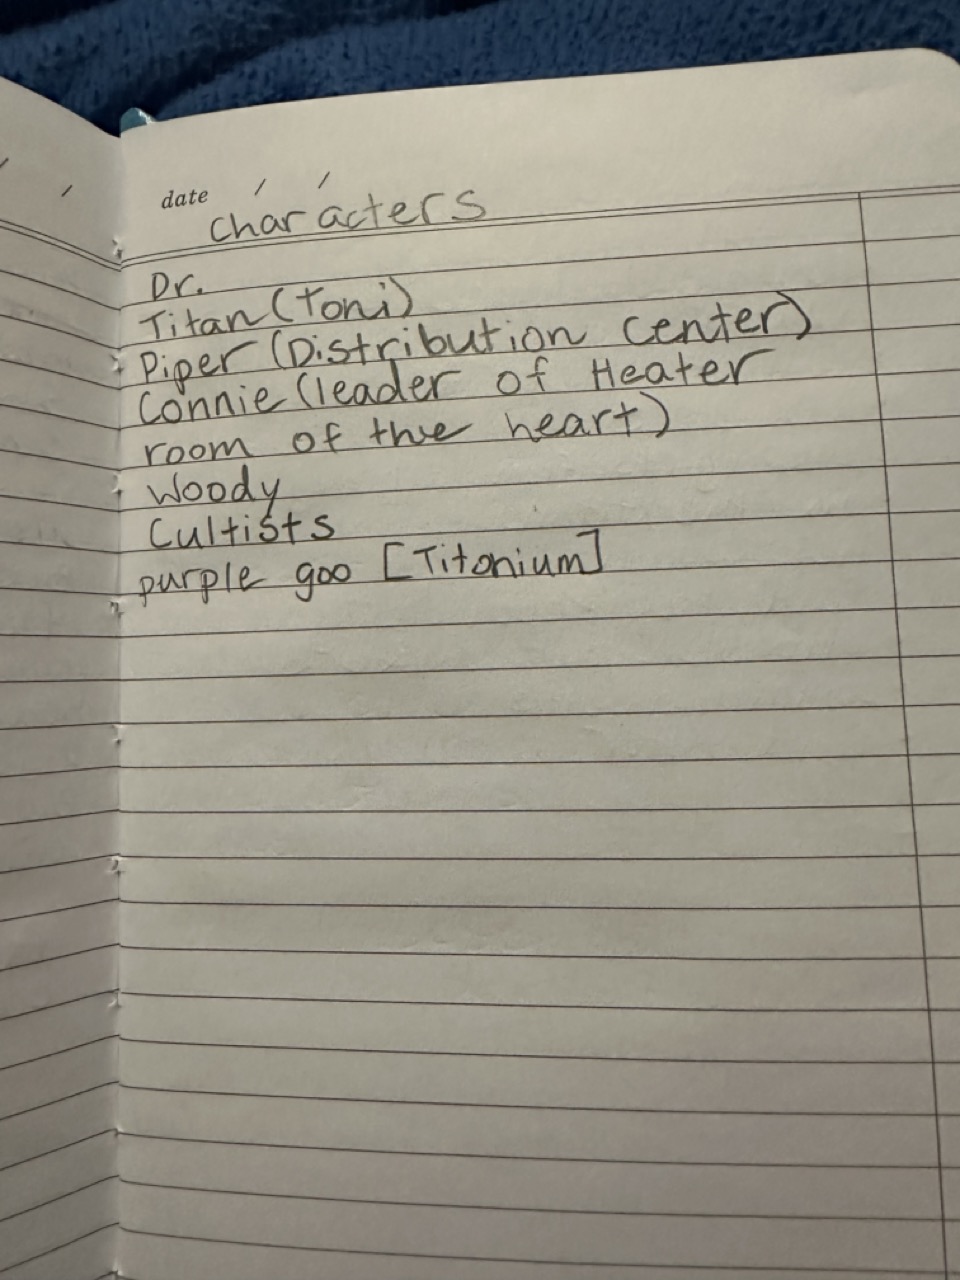 date / /
characters
Dr.
Titan (Toni)
Piper (Distribution center)
Connie (leader of Heater
room of the heart)
Woody
Cultists
purple goo [Titonium]